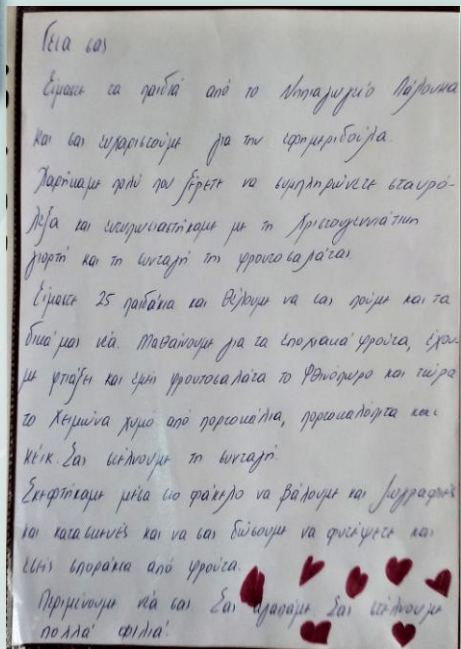 Γεια σας
Είμαστε τα παιδιά από το Νηπιαγωγείο Πάλουκα
και σας ευχαριστούμε για την εφημεριδούλα.
Χαρήκαμε πολύ που ξέρετε να συμπληρώνετε σταυρό-
λεξα και εντυπωσιαστήκαμε με τη Χριστουγεννιάτικη
γιορτή και τη συνταγή της φρουτοσαλάτας
Είμαστε 25 παιδάκια και θέλουμε να σας πούμε και τα
δικά μας νέα. Μαθαίνουμε για τα εποχιακά φρούτα, έχου-
με φτιάξει και εμείς φρουτοσαλάτα το Φθινόπωρο και τώρα
το Χειμώνα χυμό από πορτοκάλια, πορτοκαλόπιτα και
κέικ. Σας στέλνουμε τη συνταγή.
Σκεφτήκαμε μέσα στο φάκελο να βάλουμε και ζωγραφιές
και κατασκευές και να σας δώσουμε να φυτέψετε και
εσείς σποράκια από φρούτα.
Περιμένουμε νέα σας. Σας αγαπάμε. Σας στέλνουμε
πολλά φιλιά!